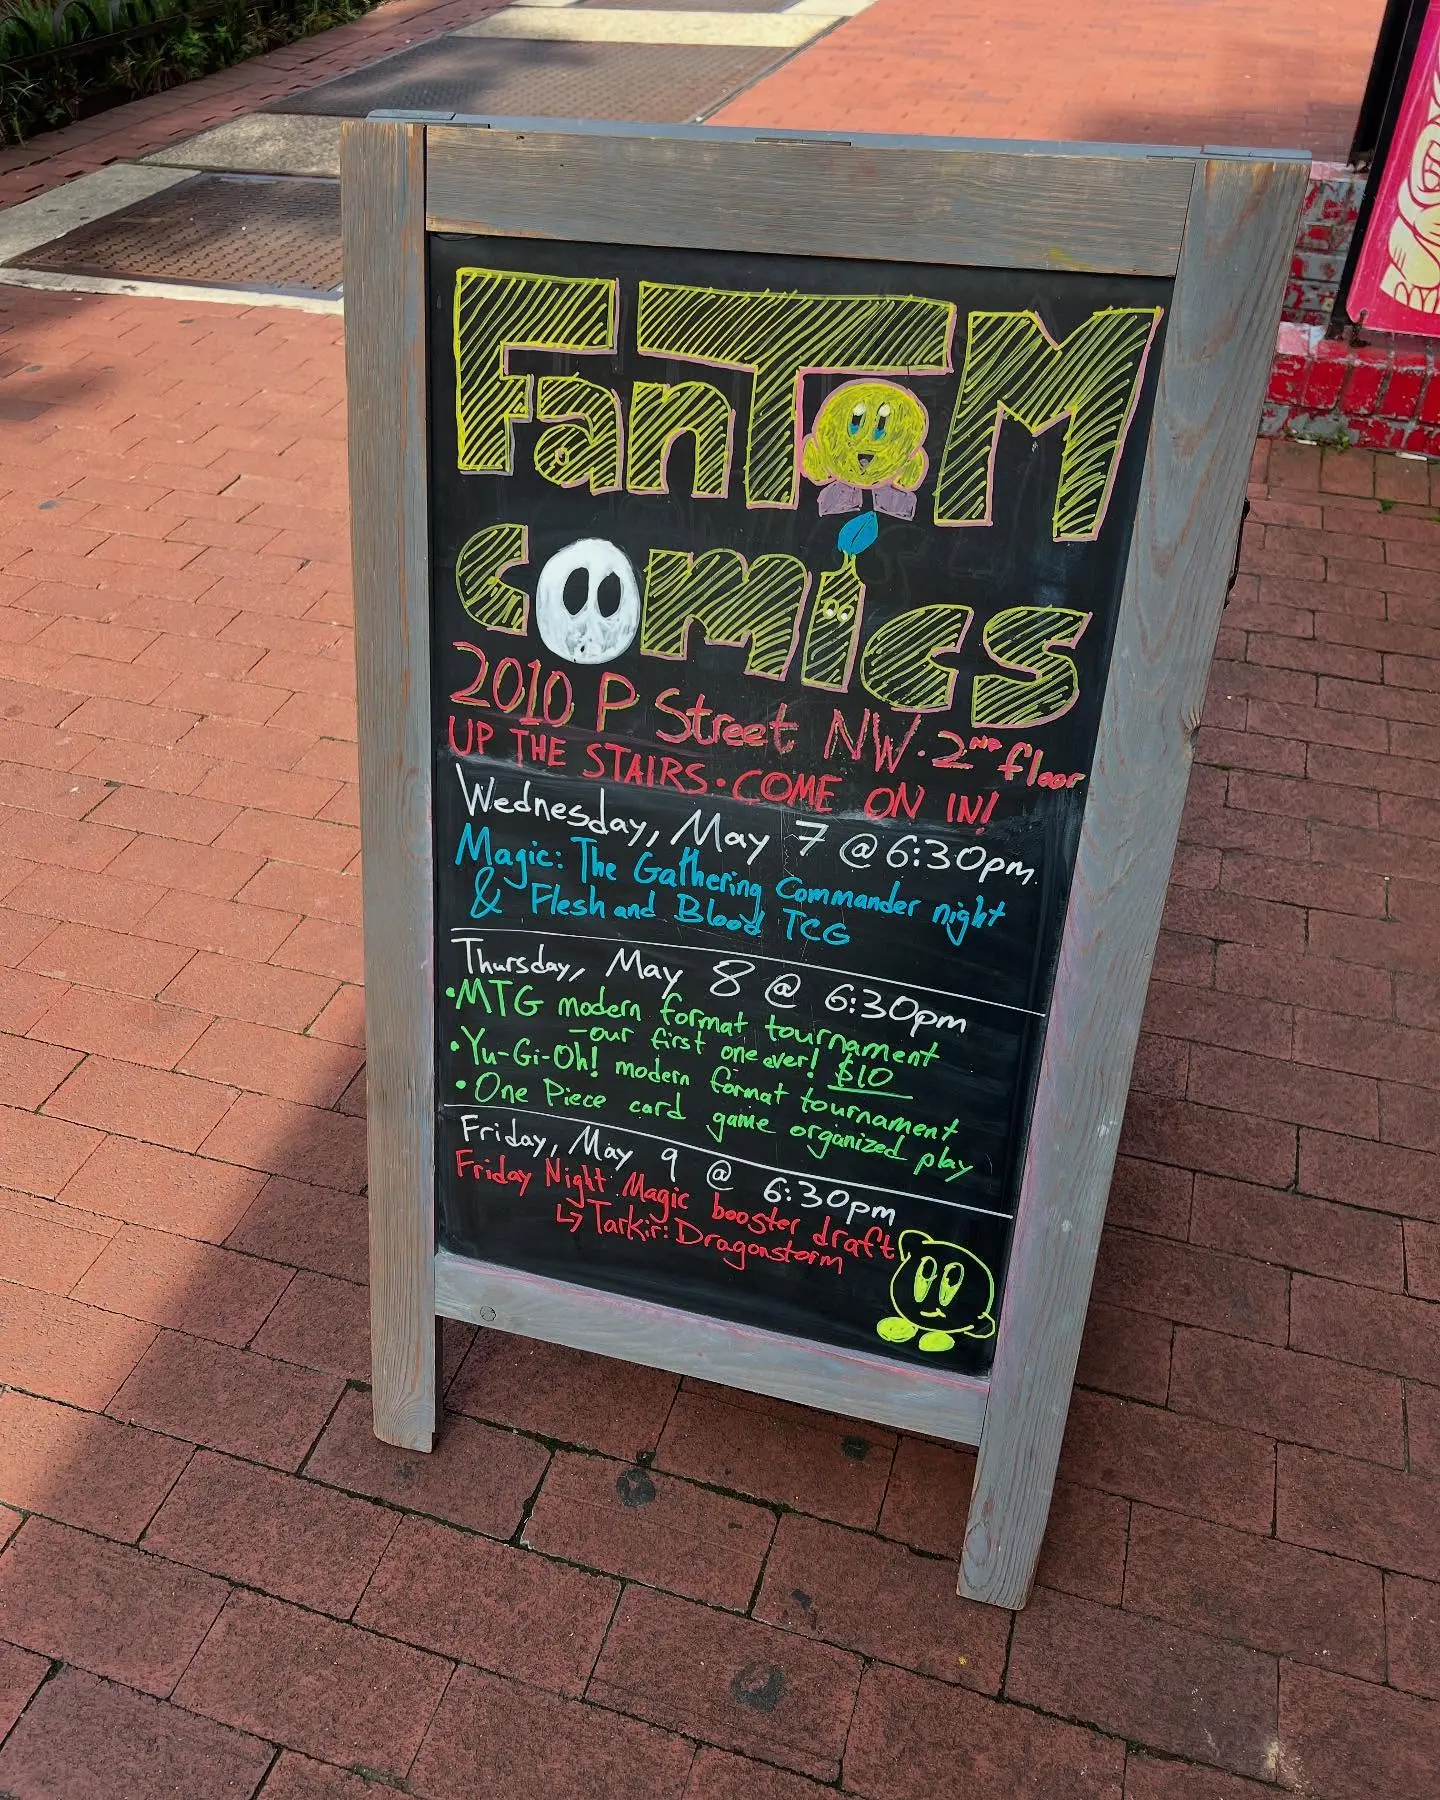 FanTOM
COMiCS
2010 P Street NW · 2ND floor
UP THE STAIRS · COME ON IN!
Wednesday, May 7 @ 6:30pm
Magic: The Gathering Commander night
& Flesh and Blood TCG
Thursday, May 8 @ 6:30pm
• MTG modern format tournament
- our first one ever! $10
• Yu-Gi-Oh! modern format tournament
• One Piece card game organized play
Friday, May 9 @ 6:30pm
Friday Night Magic booster draft
↳ Tarkir: Dragonstorm